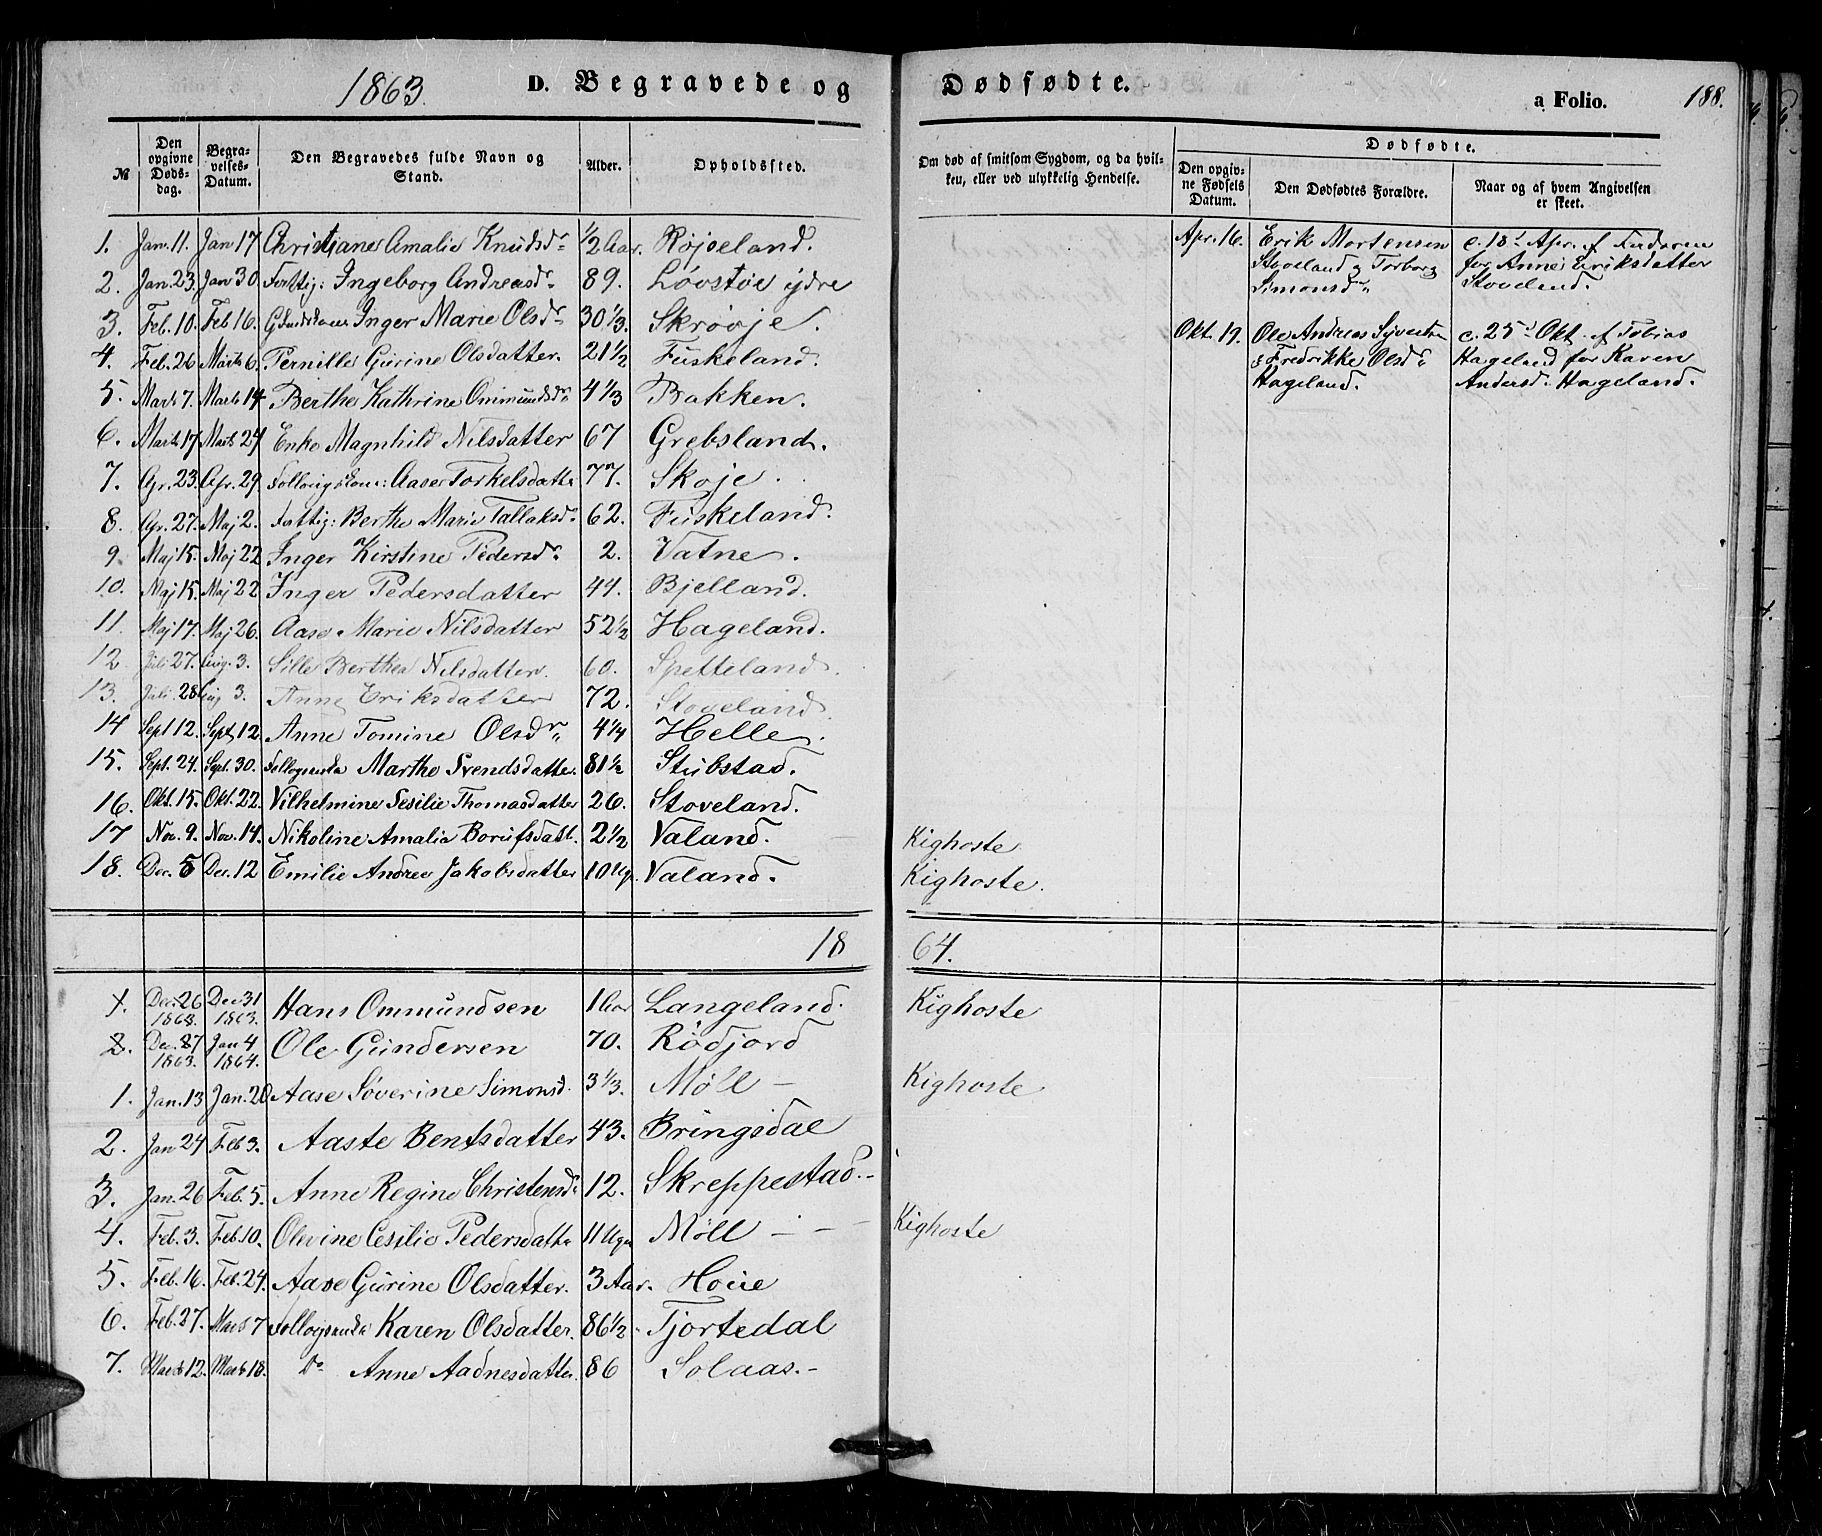 1863. D. Begravede og Dødfødte. a Folio. 188.
№ Den opgivne Døds-dag. Begra-velses-Datum. Den Begravedes fulde Navn og Stand. Alder. Opholdssted. Om død af smitsom Sygdom, og da hvil-ken, eller ved ulykkelig Hendelse. Dødfødte. Den opgiv-ne Fødsels Datum. Den Dødfødtes Forældre. Naar og af hvem Angivelsen er skeet.
1. Jan. 11. Jan 17 Christiane Amalie Knudsdr. 1/2 Aar. Røjseland.
2. Jan. 23. Jan 30. Fattig: Ingeborg Andreasdr. 89. Løvstøe ydre
3. Feb. 10. Feb 16. Inger Marie Olsdr. 30 1/3. Skrøvje.
4. Feb. 26 Marts 6. Pernille Gurine Olsdatter. 21 1/2 Fuskeland.
5. Marts 7. Marts 14 Berthe Kathrine Ommundsdr. 4 1/3 Bakken.
6. Marts 17 Marts 24 Enke Magnhild Nilsdatter 67 Grebsland.
7. Apr. 23. Apr. 29. Aase Torkelsdatter 77. Skoje.
8. Apr. 27. Maj 2. Fattig: Berthe Marie Tallaksdr. 62. Fuskeland.
9. Maj 15. Maj 22 Inger Kirstine Pedersdr. 2. Vatne.
10. Maj 15. Maj 22 Inger Pedersdatter 44. Bjelland.
11. Maj 17. Maj 26. Aase Marie Nilsdatter 52 1/2 Hageland.
12 Juli 27. Aug. 3. Sille Berthea Nilsdatter. 60. Spetteland.
13. Juli 28 Aug 3. Anne Eriksdatter 72. Stoveland.
14 Sept 12. Sept 12 Anne Tomine Olsdr. 4 1/4 Helle.
15. Sept. 24. Sept. 30. Marthe Svendsdatter. 81 1/2 Stubstad.
16. Okt. 15. Okt. 22. Vilhelmine Sesilie Thomasdatter 26. Stoveland.
17 Nov. 9. Nov. 14. Nikoline Amalia Borufsdatt. 2 1/2 Valand. Kighoste
18. Dec. 5 Dec. 12 Emilie Andrea Jakobsdatter 10 Ug. Valand. Kighoste.
Apr. 16. Erik Mortensen Stoveland og Torborg Simonsdr. e. 18d Apr. af Faderen for Anne Eriksdatter Stoveland.
Okt. 19. Ole Andreas Syvertsn & Fredrikke Olsdr. Hageland. e. 25d Okt. af Tobias Hageland for Karen Andersd. Hageland.
18 64.
1. Dec. 26 1863. Dec 31 1863. Hans Ommundsen 1 Aar Langeland. Kighoste
2. Dec. 27 1863. Jan 4 1864. Ole Gundersen 70. Rödjord
1. Jan. 13 Jan. 20 Aase Söverine Simonsd. 3 1/3. Möll – Kighoste
2. Jan 24 Feb 3. Aaste Bentsdatter 43. Bringsdal
3. Jan. 26 Feb. 5. Anne Regine Christensdr. 12. Skreppestad. –
4. Feb. 3. Feb. 10. Olevine Cesilie Pedersdattr 11 Uger Möll – – – Kighoste
5. Feb. 16. Feb. 24. Aase Gurine Olsdatter. 3 Aar. Houe
6. Feb. 27. Marts 7 Karen Olsdatter. 86 1/2. Tjortedal
7. Marts 12. Marts 18. Do Anne Aadnesdatter. 86 Solaas. –